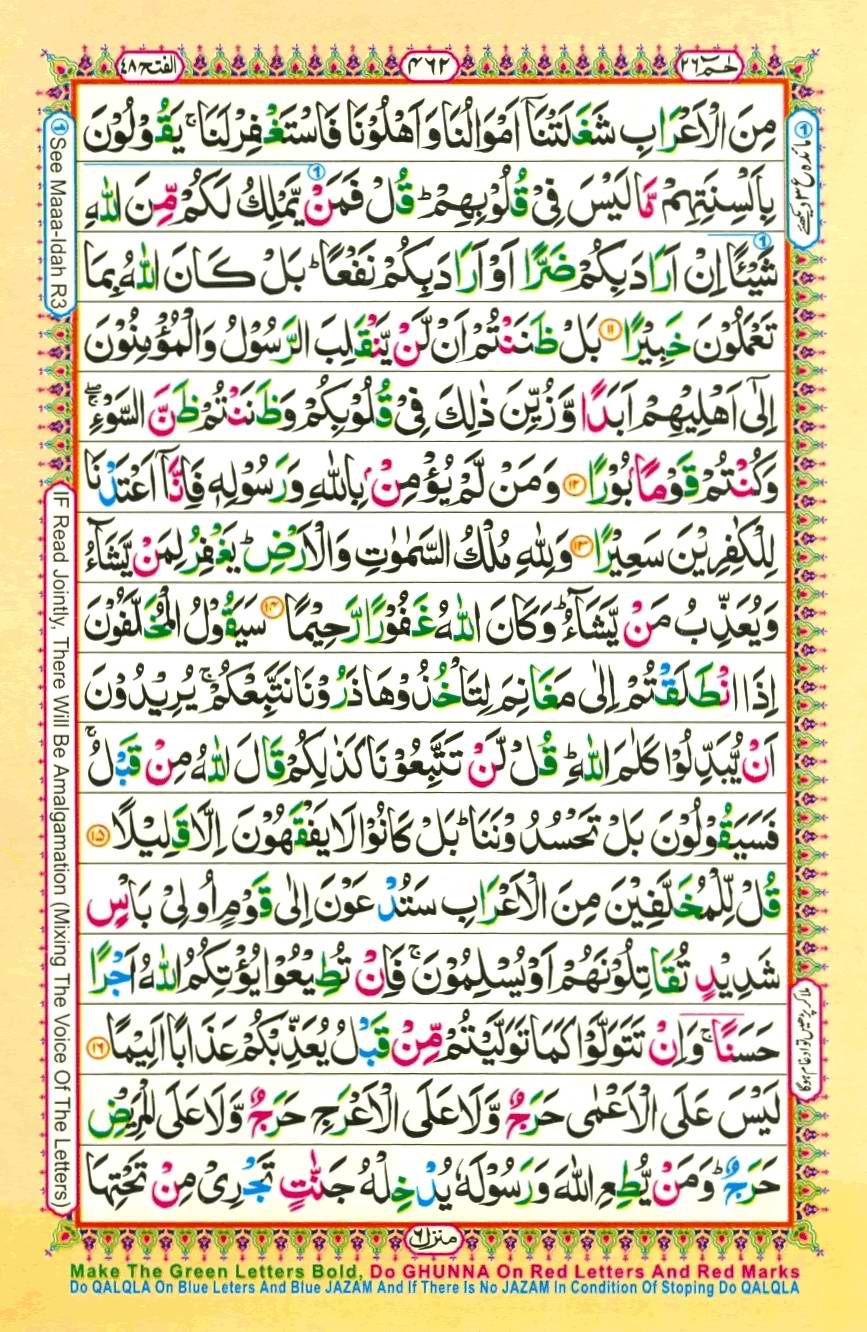 الفتح ٤٨
٤٦٢
حٰمٓ ٢٦
مِنَ الْاَعْرَابِ شَغَلَتْنَاۤ اَمْوَالُنَا وَاَهْلُوْنَا فَاسْتَغْفِرْ لَنَا ۚ یَقُوْلُوْنَ
بِاَلْسِنَتِهِمْ مَّا لَیْسَ فِیْ قُلُوْبِهِمْ ؕ قُلْ فَمَنْ یَّمْلِكُ لَكُمْ مِّنَ اللّٰهِ
شَیْـًٔا اِنْ اَرَادَ بِكُمْ ضَرًّا اَوْ اَرَادَ بِكُمْ نَفْعًا ؕ بَلْ كَانَ اللّٰهُ بِمَا
تَعْمَلُوْنَ خَبِیْرًا ۝۱۱ بَلْ ظَنَنْتُمْ اَنْ لَّنْ یَّنْقَلِبَ الرَّسُوْلُ وَالْمُؤْمِنُوْنَ
اِلٰۤی اَهْلِیْهِمْ اَبَدًا وَّزُیِّنَ ذٰلِكَ فِیْ قُلُوْبِكُمْ وَظَنَنْتُمْ ظَنَّ السَّوْءِ ۖۚ
وَكُنْتُمْ قَوْمًۢا بُوْرًا ۝۱۲ وَمَنْ لَّمْ یُؤْمِنْۢ بِاللّٰهِ وَرَسُوْلِهٖ فَاِنَّاۤ اَعْتَدْنَا
لِلْكٰفِرِیْنَ سَعِیْرًا ۝۱۳ وَلِلّٰهِ مُلْكُ السَّمٰوٰتِ وَالْاَرْضِ ؕ یَغْفِرُ لِمَنْ یَّشَآءُ
وَیُعَذِّبُ مَنْ یَّشَآءُ ؕ وَكَانَ اللّٰهُ غَفُوْرًا رَّحِیْمًا ۝۱۴ سَیَقُوْلُ الْمُخَلَّفُوْنَ
اِذَا انْطَلَقْتُمْ اِلٰی مَغَانِمَ لِتَاْخُذُوْهَا ذَرُوْنَا نَتَّبِعْكُمْ ۚ یُرِیْدُوْنَ
اَنْ یُّبَدِّلُوْا كَلٰمَ اللّٰهِ ؕ قُلْ لَّنْ تَتَّبِعُوْنَا كَذٰلِكُمْ قَالَ اللّٰهُ مِنْ قَبْلُ ۚ
فَسَیَقُوْلُوْنَ بَلْ تَحْسُدُوْنَنَا ؕ بَلْ كَانُوْا لَا یَفْقَهُوْنَ اِلَّا قَلِیْلًا ۝۱۵
قُلْ لِّلْمُخَلَّفِیْنَ مِنَ الْاَعْرَابِ سَتُدْعَوْنَ اِلٰی قَوْمٍ اُولِیْ بَاْسٍ
شَدِیْدٍ تُقَاتِلُوْنَهُمْ اَوْ یُسْلِمُوْنَ ۚ فَاِنْ تُطِیْعُوْا یُؤْتِكُمُ اللّٰهُ اَجْرًا
حَسَنًا ۚ وَاِنْ تَتَوَلَّوْا كَمَا تَوَلَّیْتُمْ مِّنْ قَبْلُ یُعَذِّبْكُمْ عَذَابًا اَلِیْمًا ۝۱۶
لَیْسَ عَلَی الْاَعْمٰی حَرَجٌ وَّلَا عَلَی الْاَعْرَجِ حَرَجٌ وَّلَا عَلَی الْمَرِیْضِ
حَرَجٌ ؕ وَمَنْ یُّطِعِ اللّٰهَ وَرَسُوْلَهٗ یُدْخِلْهُ جَنّٰتٍ تَجْرِیْ مِنْ تَحْتِهَا
منزل ٦
① See Maaa-Idah R3
IF Read Jointly, There Will Be Amalgamation (Mixing The Voice Of The Letters)
① مائدہ ع ٣ دیکھئے
ملا کر پڑھیں تو ادغام ہوگا
Make The Green Letters Bold, Do GHUNNA On Red Letters And Red Marks
Do QALQLA On Blue Leters And Blue JAZAM And If There Is No JAZAM In Condition Of Stoping Do QALQLA